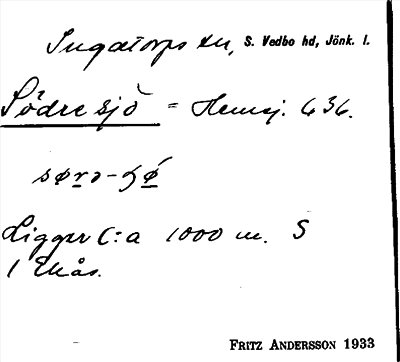 Ingatorps sn, S. Vedbo hd, Jönk. l.
Södresjö = Hemsj. 636.
sørə-ɧø
Ligger C:a 1000 m. S
/ Ekås.
FRITZ ANDERSSON 1933